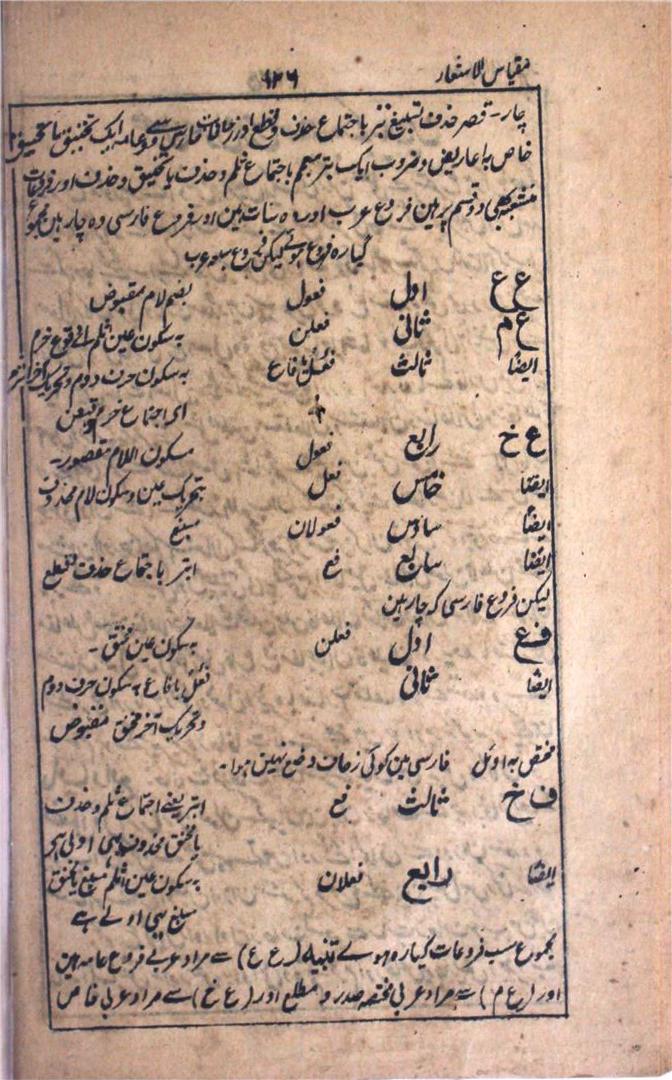 مقیاس الاشعار
۱۲۶
چار۔ قصر حذف تسبیغ بتر باجتماع حذف و قطع اور زحافات فارسی سے دو عامہ ایک تخنیق یا تحقیق ۲
خاص باعاریض و ضروب ایک بتر بہم باجتماع ثلم و حذف یا تخنیق و حذف اور فروعات
منشعبہ بھی دو قسم پر ہین فروع عرب اور وہ سات ہین اور فروع فارسی وہ چار ہین مجموع
گیارہ فروع ہوئے لیکن فروع سبعہ عرب
ع ع اول فعول بضم لام مقبوض
ع م ثانی فعلن بہ سکون عین اثلم اے وقوع خرم
ایضًا ثالث فعل یا فاع بہ سکون حرف دوم و تحریک آخر اثرم
اے اجتماع خرم و قبض
ع خ رابع فعول بسکون اللام مقصور۔
ایضًا خامس فعل بتحریک عین و سکون لام محذوف
ایضًا سادس فعولان مسبغ
ایضًا سابع فع ابتر باجتماع حذف و قطع
لیکن فروع فارسی کہ چار ہین
ف ع اول فعلن بہ سکون عین مخنق۔
ایضًا ثانی فعل یا فاع بہ سکون حرف دوم
و تحریک آخر مخنق مقبوض
مختص بہ اوئل فارسی مین کوئی زحاف وضع نہین ہوا۔
ف خ ثالث فع ابتر یعنے اجتماع ثلم و حذف
یا مخنق محذوف یہی اولی ہی
ایضًا رابع فعلان بہ سکون عین اثلم مسبغ یا مخنق
مسبغ یہی اولے ہے
مجموع سب فروعات گیارہ ہوے تنبیہ (ع ع) سے مراد عربی فروع عامہ ہین
اور (ع م) سے مراد عربی مختصہ صدر و مطلع اور (ع خ) سے مراد عربی خاص